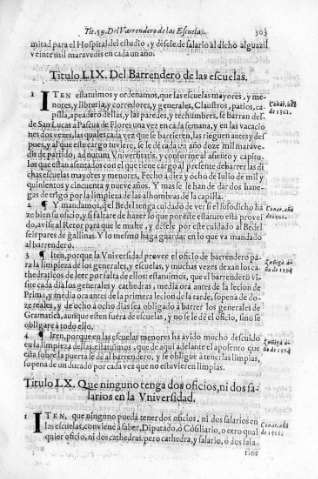 Tit. 59. Del Varrendero de las Escuelas. 303
mitad para el Hospital del estudio, y dese le de salario al dicho alguazil
veinte mil maravedis en cada un año.
Titulo LIX. Del Barrendero de las escuelas.
1 ITEN estatuimos y ordenamos, que las escuelas mayores, y me-
nores, y libreria, y corredores, y generales, Claustros, patios, ca-
pilla, apeadero dellas, y las paredes, y techumbres, se barran des-
de San Lucas a Pascua de Flores una vez en cada semana, y en las vacacio
nes dos vezes, las quales cada vez que se barrieren, las rieguen antes y des-
pues, al que este cargo tuviere, se le dè cada año doze mil marave-
dis de partido, ad nutum Vniversitatis, y conforme al asiento y capitu-
las que estan asentados con el que tiene cargo al presente de barrer las di
chas escuelas mayores y menores, Fecho a diez y ocho de Iulio de mil y
quinientos y cincuenta y nueve años. Y mas se le han de dar dos hane-
gas de trigo por la limpieza de las alhombras de la capilla.
2 ¶ Y mandamos, que el Bedel tenga cuidado de ver si el susodicho ha
ze bien su oficio, y si faltare de hazer lo que por este estatuto està provei
do, avise al Retor para que le multe, y dexele por este cuidado al Bedel
seis pares de gallinas. Y lo mesmo haga guardar en lo que va mandado
al barrendero.
3 ¶ Iten, porque la Vniversidad provee el oficio de barrendero pa-
ra la limpieza de los generales, y escuelas, y muchas vezes dexan los ca-
thedraticos de leer por falta de estos: estatuimos, que el barrendero visi-
te cada dia los generales y cathedras, media ora antes de la lecion de
Prima, y media ora antes de la primera lecion de la tarde, so pena de do-
ze reales, y de ocho a ocho dias sea obligado à barrer los generales de
Gramatica, aunque esten fuera de escuelas, y no se le dè el oficio, sino se
obligare à todo ello.
4 ¶ Iten, porque en las escuelas menores ha avido mucho descuido
en la limpieza dellas, estatuimos, que de aqui adelante el aposento que
està sobre la puerta se dè al barrendero, y se obligue à tenerlas limpias,
so pena de un ducado por cada vez que no estuvieren limpias.
Titulo LX. Que ninguno tenga dos oficios, ni dos sa-
larios en la Vniversidad.
1 ITEN, que ninguno pueda tener dos oficios, ni dos salarios en
las escuelas, conviene à saber, Diputado, ò Cõsiliario, o otro qual
quier oficio, ni dos cathedras, pero cathedra, y salario, ò dos sala-